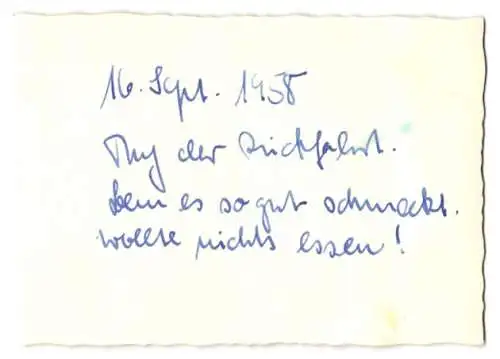 16. Sept. 1958
Auf der Rückfahrt.
Dem es so gut schmeckt.
wollte nichts essen!